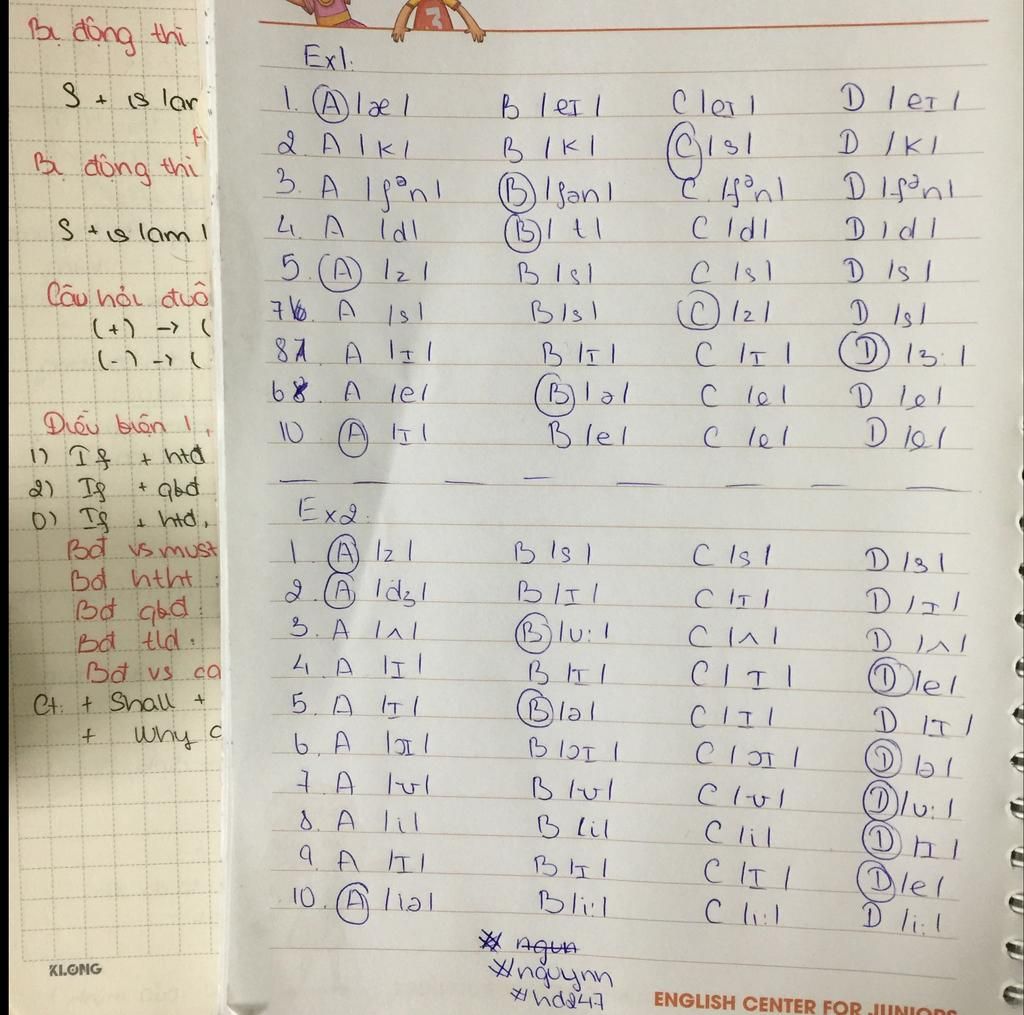 Bị động thì
S + is /ar
Bị động thì
S + is /am /
Câu hỏi đuô
(+) → (
(-) → (
Điều biện 1,
1) If + htđ
2) If + qkđ
0) If + htđ,
Bđ vs must
Bđ htht :
Bđ qkđ :
Bđ tlđ :
Bđ vs ca
Ct: + Shall +
+ Why
KLONG
3
Ex1:
1. A /æ/ B /eɪ/ C /eɪ/ D /eɪ/
2 A /k/ B /k/ C /s/ D /k/
3. A /ʃᵊn/ B /ʃən/ C /ʃᵊn/ D /ʃᵊn/
4. A /d/ B /t/ C /d/ D /d/
5. A /z/ B /s/ C /s/ D /s/
7 6. A /s/ B /s/ C /z/ D /s/
8 7 A /ɪ/ B /ɪ/ C /ɪ/ D /ɜ:/
6 8. A /e/ B /ə/ C /e/ D /e/
10 A /ɪ/ B /e/ C /e/ D /e/
Ex2:
1. A /z/ B /s/ C /s/ D /s/
2. A /dʒ/ B /ɪ/ C /ɪ/ D /ɪ/
3. A /ʌ/ B /u:/ C /ʌ/ D /ʌ/
4. A /ɪ/ B /ɪ/ C /ɪ/ D /e/
5. A /ɪ/ B /ə/ C /ɪ/ D /ɪ/
6. A /ɔɪ/ B /ɔɪ/ C /ɔɪ/ D /ə/
7. A /ʊ/ B /ʊ/ C /ʊ/ D /u:/
8. A /i/ B /i/ C /i/ D /ɪ/
9. A /ɪ/ B /ɪ/ C /ɪ/ D /e/
10. A /iə/ B /i:/ C /i:/ D /i:/
#nguynn
#hd247
ENGLISH CENTER FOR JUNIORS